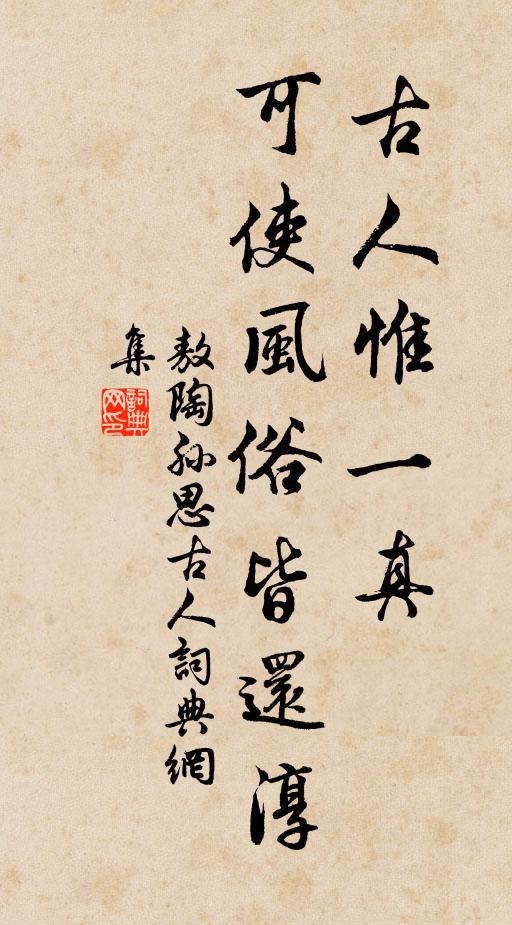 古人惟一真
可使風俗皆還淳
敖陶孫思古人詞典網
集
詞典
网印